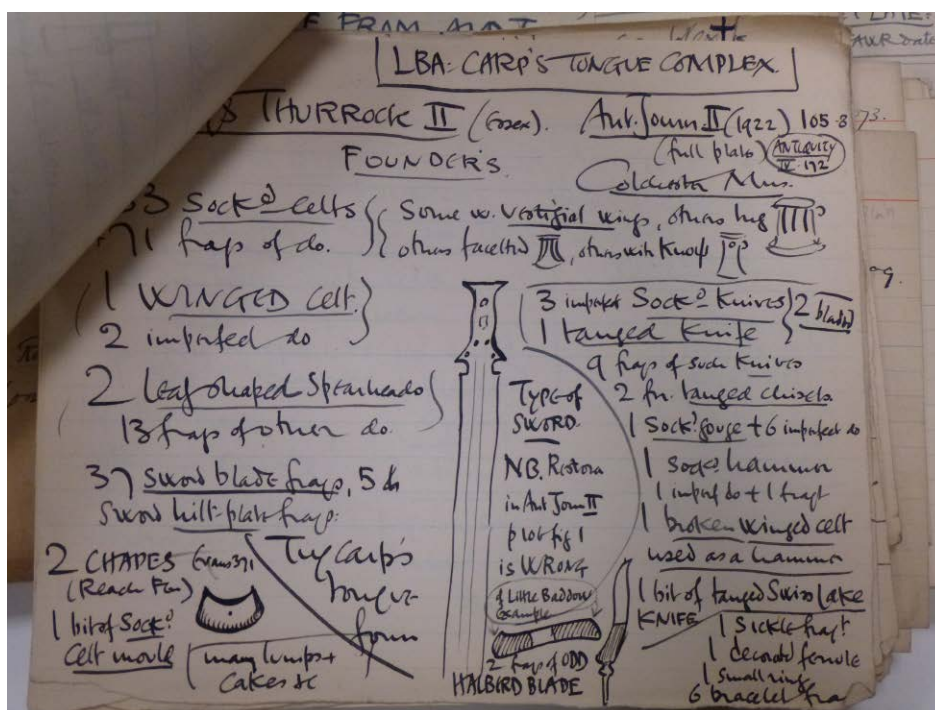 FROM
LBA: CARP'S TONGUE COMPLEX.
THURROCK II (Essex). Ant. Journ. II (1922) 105-8
(full plate) ANTIQUITY
IV. 192
FOUNDER'S
Colchester Mus.
3 Sockd Celts
71 frags of do.
Some w. vestigial wings, others leg
others facetted, others with Knobs
1 WINGED Celt.
2 imperfect do
2 Leaf shaped Spearheads
13 frags of other do.
37 Sword blade frags, 5 do
Sword hilt-plate frags:
Try Carp's
tongue
form
2 CHAPES Evans 371
(Reach Fen)
1 bit of Sockd
Celt mould
many lumps +
Cakes &c
TYPE of
SWORD.
NB. Restorn
in Ant Journ II
p 106 fig 1
is WRONG
cf Little Baddow
example
2 frags of ODD
HALBERD BLADE
3 imperf Sockd Knives
1 tanged Knife
2 blades
9 frags of such Knives
2 fr. tanged chisels
1 Sockd gouge + 6 imperfect do
1 sockd hammer
1 imperf do + 1 fragt
1 broken winged celt
used as a hammer
1 bit of tanged Swiss Lake
KNIFE
1 Sickle fragt
1 decorated ferrule
1 small ring
6 bracelet fra